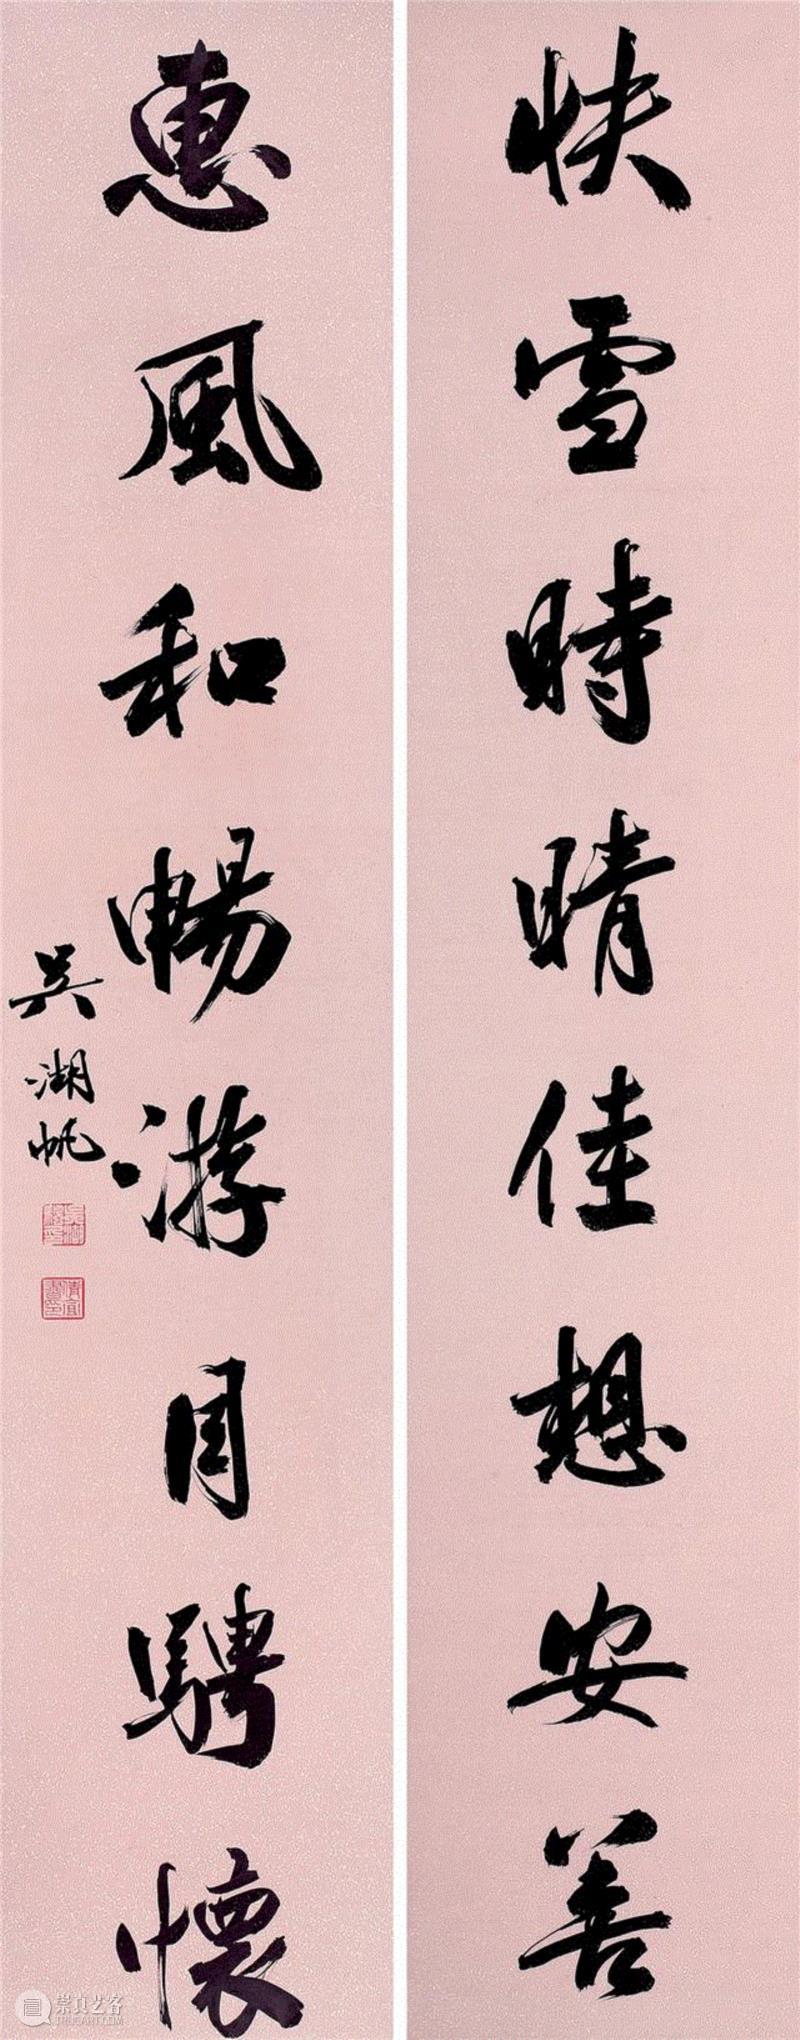 快雪時晴佳想安善
惠風和暢游目騁懷
吳湖帆
崇真艺客
TRUEART.COM